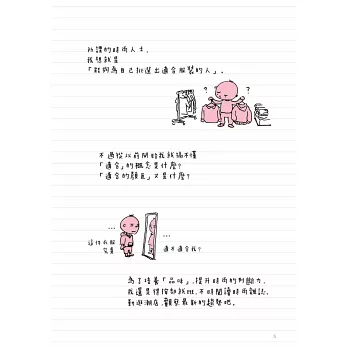 所謂的時尚人士，
我想就是
「能夠為自己挑選出適合服裝的人」。
? ?
不過從以前開始我就搞不懂
「適合」的概念是什麼?
「適合的顏色」又是什麼?
... ...
這件衣服
究竟
適不適合我?
為了培養「品味」,提升時尚的判斷力,
我還是得按部就班,不時閱讀時尚雜誌、
勤逛潮店,觀察最新的趨勢吧。